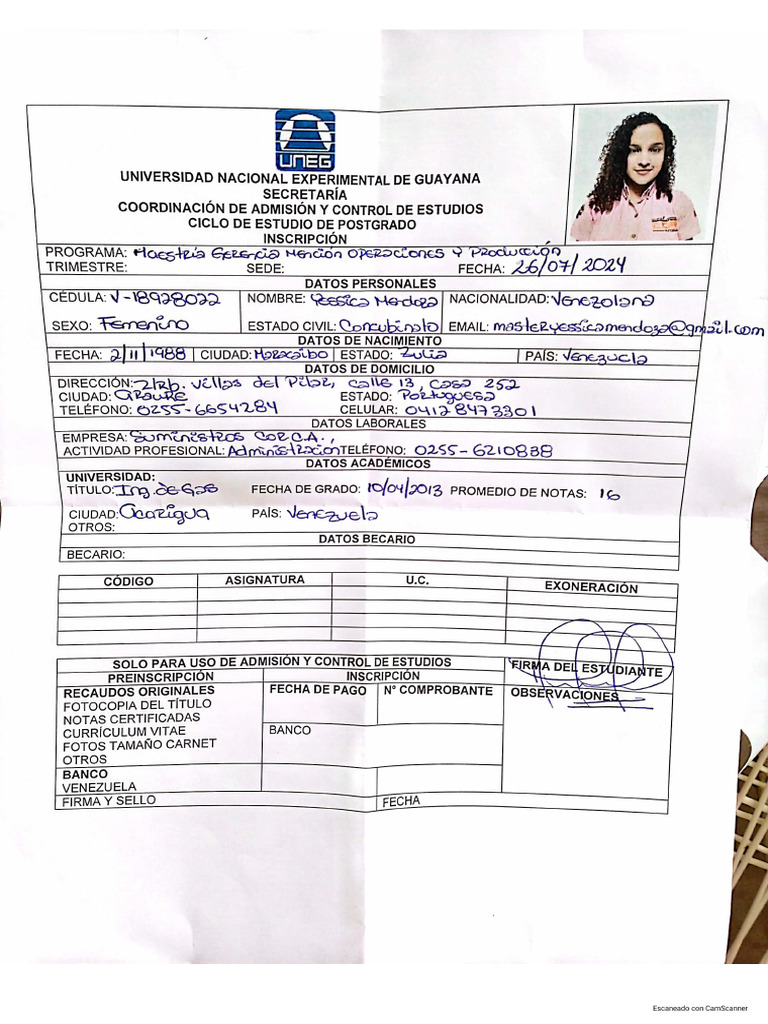 UNEG
UNIVERSIDAD NACIONAL EXPERIMENTAL DE GUAYANA
SECRETARÍA
COORDINACIÓN DE ADMISIÓN Y CONTROL DE ESTUDIOS
CICLO DE ESTUDIO DE POSTGRADO
INSCRIPCIÓN
PROGRAMA: Maestría Gerencia Mención Operaciones y Producción
TRIMESTRE: SEDE: FECHA: 26/07/2024
DATOS PERSONALES
CÉDULA: V-18928022 NOMBRE: Yessica Mendoza NACIONALIDAD: Venezolana
SEXO: Femenino ESTADO CIVIL: Concubinato EMAIL: masteryessicamendoza@gmail.com
DATOS DE NACIMIENTO
FECHA: 2/11/1988 CIUDAD: Maracaibo ESTADO: Zulia PAÍS: Venezuela
DATOS DE DOMICILIO
DIRECCIÓN: Urb. Villas del Pilar, calle 13, casa 252
CIUDAD: Araure ESTADO: Portuguesa
TELÉFONO: 0255-6654284 CELULAR: 04128473301
DATOS LABORALES
EMPRESA: Suministros COR C.A.,
ACTIVIDAD PROFESIONAL: Administración TELÉFONO: 0255-6210838
DATOS ACADÉMICOS
UNIVERSIDAD:
TÍTULO: Ing. de Gas FECHA DE GRADO: 10/04/2013 PROMEDIO DE NOTAS: 16
CIUDAD: Acarigua PAÍS: Venezuela
OTROS:
DATOS BECARIO
BECARIO:
CÓDIGO ASIGNATURA U.C. EXONERACIÓN
SOLO PARA USO DE ADMISIÓN Y CONTROL DE ESTUDIOS FIRMA DEL ESTUDIANTE
PREINSCRIPCIÓN INSCRIPCIÓN
RECAUDOS ORIGINALES FECHA DE PAGO N° COMPROBANTE OBSERVACIONES
FOTOCOPIA DEL TÍTULO
NOTAS CERTIFICADAS
CURRÍCULUM VITAE BANCO
FOTOS TAMAÑO CARNET
OTROS
BANCO
VENEZUELA
FIRMA Y SELLO FECHA
Escaneado con CamScanner